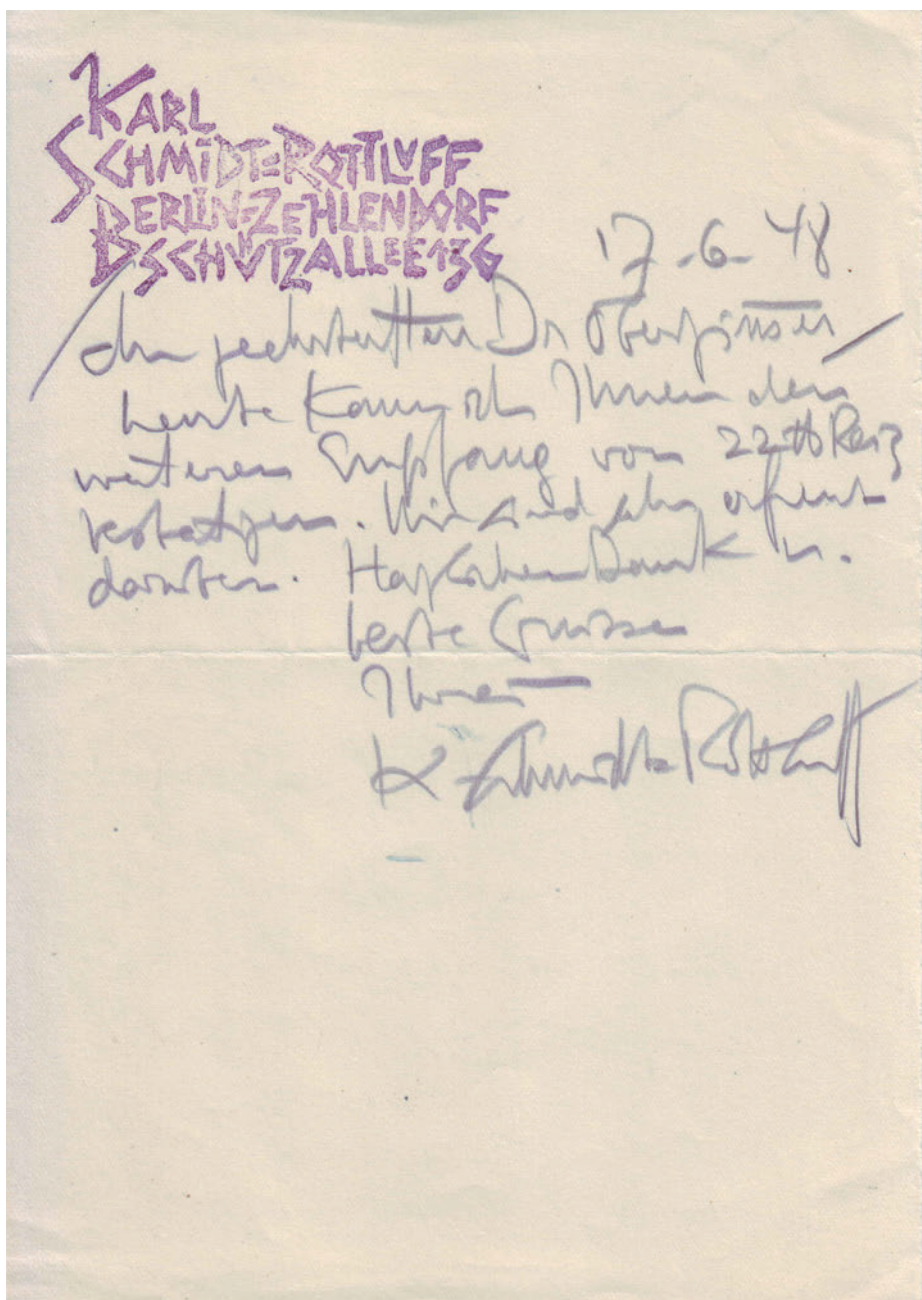 KARL
SCHMIDT=ROTTLUFF
BERLIN=ZEHLENDORF
SCHÜTZALLEE 136
17-6-48
Dr
heute kann ich Ihnen den
weiteren Empfang von 22 # Reis
bestätigen. Wir sind sehr erfreut
darüber. Herzlichen Dank u.
beste Grüsse
Ihres
K Schmidt=Rottluff